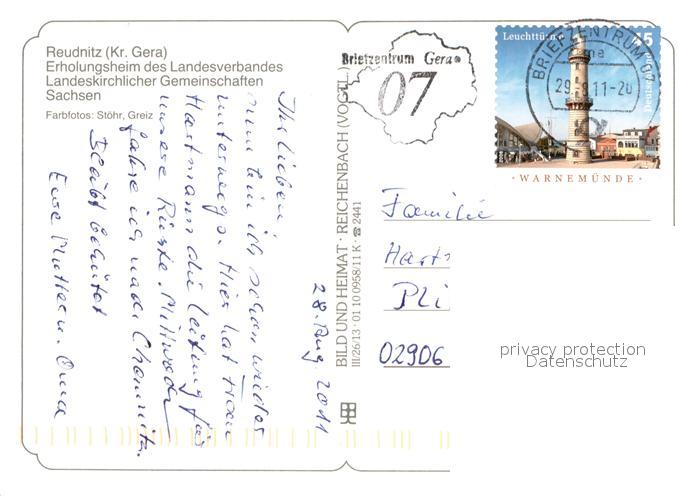 Reudnitz (Kr. Gera)
Erholungsheim des Landesverbandes
Landeskirchlicher Gemeinschaften
Sachsen
Farbfotos: Stöhr, Greiz
28. Aug 2011
Ihr Lieben,
nun bin ich schon wieder
unterwegs. Hier hat Frau
Hartmann die Leitung für
unsere Rüste. Mittwoch
fahre ich nach Chemnitz.
Bleibt behütet
Eure Muttern. Oma
BILD UND HEIMAT · REICHENBACH (VOGTL.)
III/26/13 · 01 10 0958/11 K · ☎ 2441
Briefzentrum Gera
07
Leuchttürme
45
Deutschland
2008
· WARNEMÜNDE ·
BRIEFZENTRUM 07
29.-8.11-20
Familie
Hart
Pli
02906
privacy protection
Datenschutz